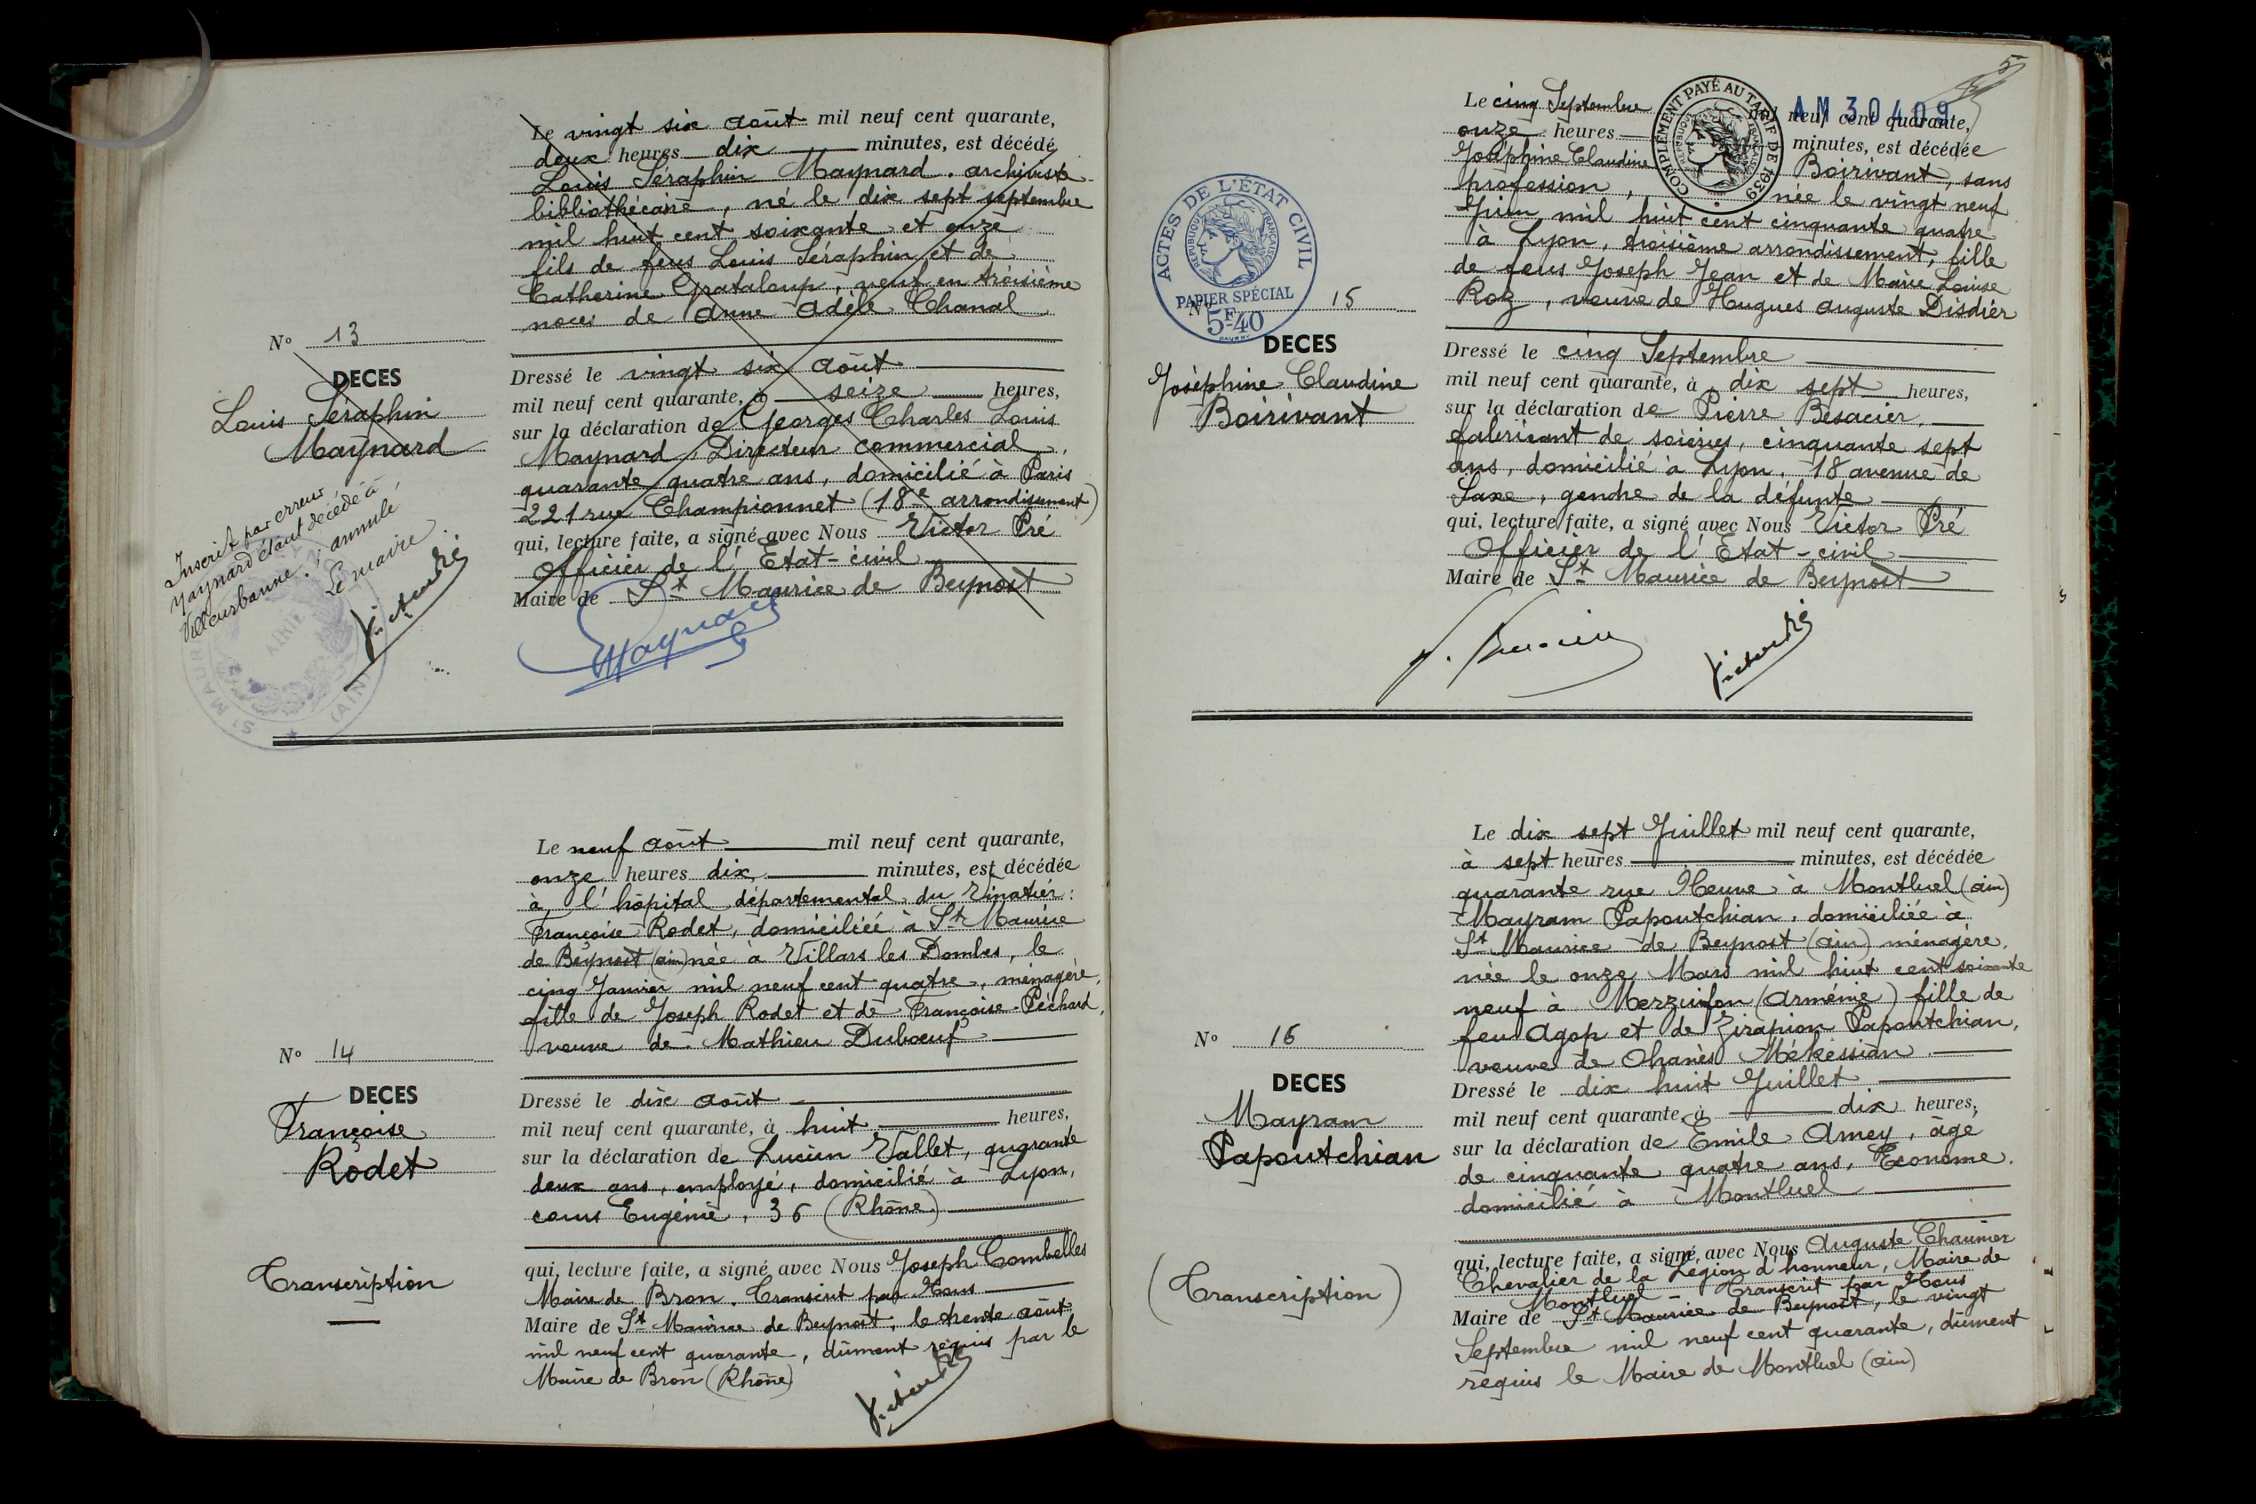 Le vingt six août mil neuf cent quarante,
deux heures dix minutes, est décédé
Louis Séraphin Maynard. archiviste
bibliothécaire, né le dix sept septembre
mil huit cent soixante et onze
fils de feus Louis Séraphin et de
Catherine Grataloup, veuf en troisième
noces de Anne Adèle Chanal
N° 13
DECES
Louis Séraphin
Maynard
Dressé le vingt six août
mil neuf cent quarante, à seize heures,
sur la déclaration de Georges Charles Louis
Maynard, Directeur commercial,
quarante quatre ans, domicilié à Paris,
221 rue Championnet (18e arrondissement)
qui, lecture faite, a signé avec Nous Victor Pré
Officier de l'Etat-civil
Maire de St Maurice de Beynost
Inscrit par erreur
Maynard étant décédé à
Villeurbanne. annulé
Le maire
Victor Pré
Maynard
Le neuf août mil neuf cent quarante,
onze heures dix minutes, est décédée
à l'hôpital départemental du Vinatier:
Françoise Rodet, domiciliée à St Maurice
de Beynost (ain) née à Villars les Dombes, le
cinq Janvier mil neuf cent quatre, ménagère,
fille de Joseph Rodet et de Françoise Péchard,
veuve de Mathieu Dubœuf
N° 14
DECES
Françoise
Rodet
Dressé le dix août
mil neuf cent quarante, à huit heures,
sur la déclaration de Lucien Vallet, quarante
deux ans, employé, domicilié à Lyon,
cours Eugénie, 36 (Rhône)
Transcription
qui, lecture faite, a signé avec Nous Joseph Combelles
Maire de Bron. Transcrit par Nous
Maire de St Maurice de Beynost, le trente août
mil neuf cent quarante, dûment requis par le
Maire de Bron (Rhône)
Victor Pré
5
AM 30409
COMPLÉMENT PAYÉ AU TARIF DE 1939
Le cinq Septembre mil neuf cent quarante,
onze heures minutes, est décédée
Joséphine Claudine Boirivant, sans
profession, née le vingt neuf
Juin mil huit cent cinquante quatre
à Lyon, troisième arrondissement, fille
de feus Joseph Jean et de Marie Louise
Roz, veuve de Hugues Auguste Disdier
ACTES DE L'ÉTAT CIVIL
RÉPUBLIQUE FRANÇAISE
PAPIER SPÉCIAL
5F40
N° 15
DECES
Joséphine Claudine
Boirivant
Dressé le cinq Septembre
mil neuf cent quarante, à dix sept heures,
sur la déclaration de Pierre Besacier,
fabricant de soieries, cinquante sept
ans, domicilié à Lyon, 18 avenue de
Saxe, gendre de la défunte
qui, lecture faite, a signé avec Nous Victor Pré
Officier de l'Etat-civil
Maire de St Maurice de Beynost
Victor Pré
Le dix sept Juillet mil neuf cent quarante,
à sept heures minutes, est décédée
quarante rue Neuve à Montluel (ain)
Mayram Papoutchian, domiciliée à
St Maurice de Beynost (ain) ménagère,
née le onze Mars mil huit cent soixante
neuf à Merzuifon (Arménie) fille de
feu Agop et de Zirapion Papoutchian,
veuve de Ohanès Mékessian
N° 16
DECES
Mayram
Papoutchian
Dressé le dix huit Juillet
mil neuf cent quarante, à dix heures,
sur la déclaration de Emile Amey, âgé
de cinquante quatre ans, Econome,
domicilié à Montluel
(Transcription)
qui, lecture faite, a signé, avec Nous Auguste Chaumer
Chevalier de la Légion d'honneur, Maire de
Montluel - Transcrit par Nous
Maire de St Maurice de Beynost, le vingt
Septembre mil neuf cent quarante, dûment
requis le Maire de Montluel (ain)